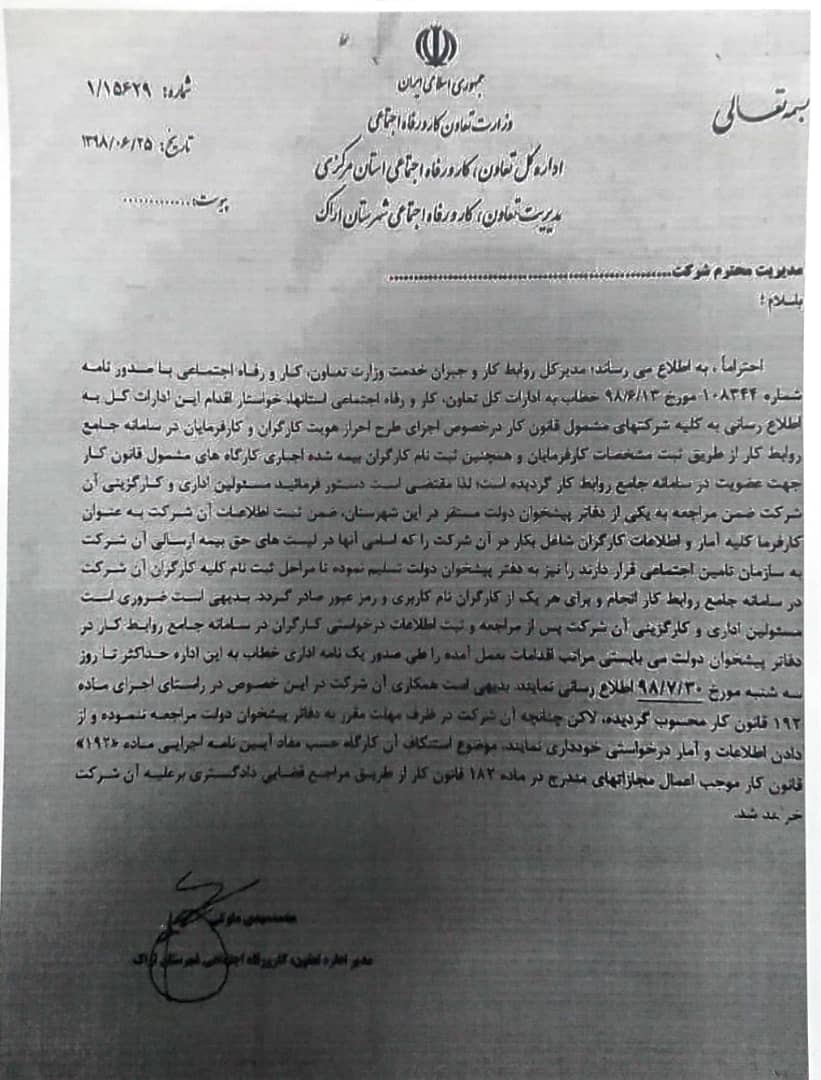 بسمه تعالی
جمهوری اسلامی ایران
وزارت تعاون کار و رفاه اجتماعی
اداره کل تعاون، کار و رفاه اجتماعی استان مرکزی
مدیریت تعاون، کار و رفاه اجتماعی شهرستان اراک
شماره: ۱/۱۵۶۲۹
تاریخ: ۱۳۹۸/۰۶/۲۵
پیوست:.............
مدیریت محترم شرکت............................................................
باسلام؛
احتراماً، به اطلاع می رساند؛ مدیرکل روابط کار و جبران خدمت وزارت تعاون، کار و رفاه اجتماعی با صدور نامه
شماره ۱۰۸۳۴۴ مورخ ۹۸/۶/۱۳ خطاب به ادارات کل تعاون، کار و رفاه اجتماعی استانها، خواستار اقدام این ادارات کل به
اطلاع رسانی به کلیه شرکتهای مشمول قانون کار درخصوص اجرای طرح احراز هویت کارگران و کارفرمایان در سامانه جامع
روابط کار از طریق ثبت مشخصات کارفرمایان و همچنین ثبت نام کارگران بیمه شده اجباری کارگاه های مشمول قانون کار
جهت عضویت در سامانه جامع روابط کار گردیده است؛ لذا مقتضی است دستور فرمائید مسئولین اداری و کارگزینی آن
شرکت ضمن مراجعه به یکی از دفاتر پیشخوان دولت مستقر در این شهرستان، ضمن ثبت اطلاعات آن شرکت به عنوان
کارفرما کلیه آمار و اطلاعات کارگران شاغل بکار در آن شرکت را که اسامی آنها در لیست های حق بیمه ارسالی آن شرکت
به سازمان تامین اجتماعی قرار دارند را نیز به دفتر پیشخوان دولت تسلیم نموده تا مراحل ثبت نام کلیه کارگران آن شرکت
در سامانه جامع روابط کار انجام و برای هر یک از کارگران نام کاربری و رمز عبور صادر گردد. بدیهی است ضروری است
مسئولین اداری و کارگزینی آن شرکت پس از مراجعه و ثبت اطلاعات درخواستی کارگران در سامانه جامع روابط کار در
دفاتر پیشخوان دولت می بایستی مراتب اقدامات بعمل آمده را طی صدور یک نامه اداری خطاب به این اداره حداکثر تا روز
سه شنبه مورخ ۹۸/۷/۳۰ اطلاع رسانی نمایند. بدیهی است همکاری آن شرکت در این خصوص در راستای اجرای ماده
۱۹۲ قانون کار محسوب گردیده، لاکن چنانچه آن شرکت در ظرف مهلت مقرر به دفاتر پیشخوان دولت مراجعه ننموده و از
دادن اطلاعات و آمار درخواستی خودداری نمایند، موضوع استنکاف آن کارگاه حسب مفاد آیین نامه اجرایی ماده «۱۹۲»
قانون کار موجب اعمال مجازاتهای مندرج در ماده ۱۸۲ قانون کار از طریق مراجع قضایی دادگستری برعلیه آن شرکت
خواهد شد.
محمدمهدی
مدیر اداره تعاون، کار و رفاه اجتماعی شهرستان اراک